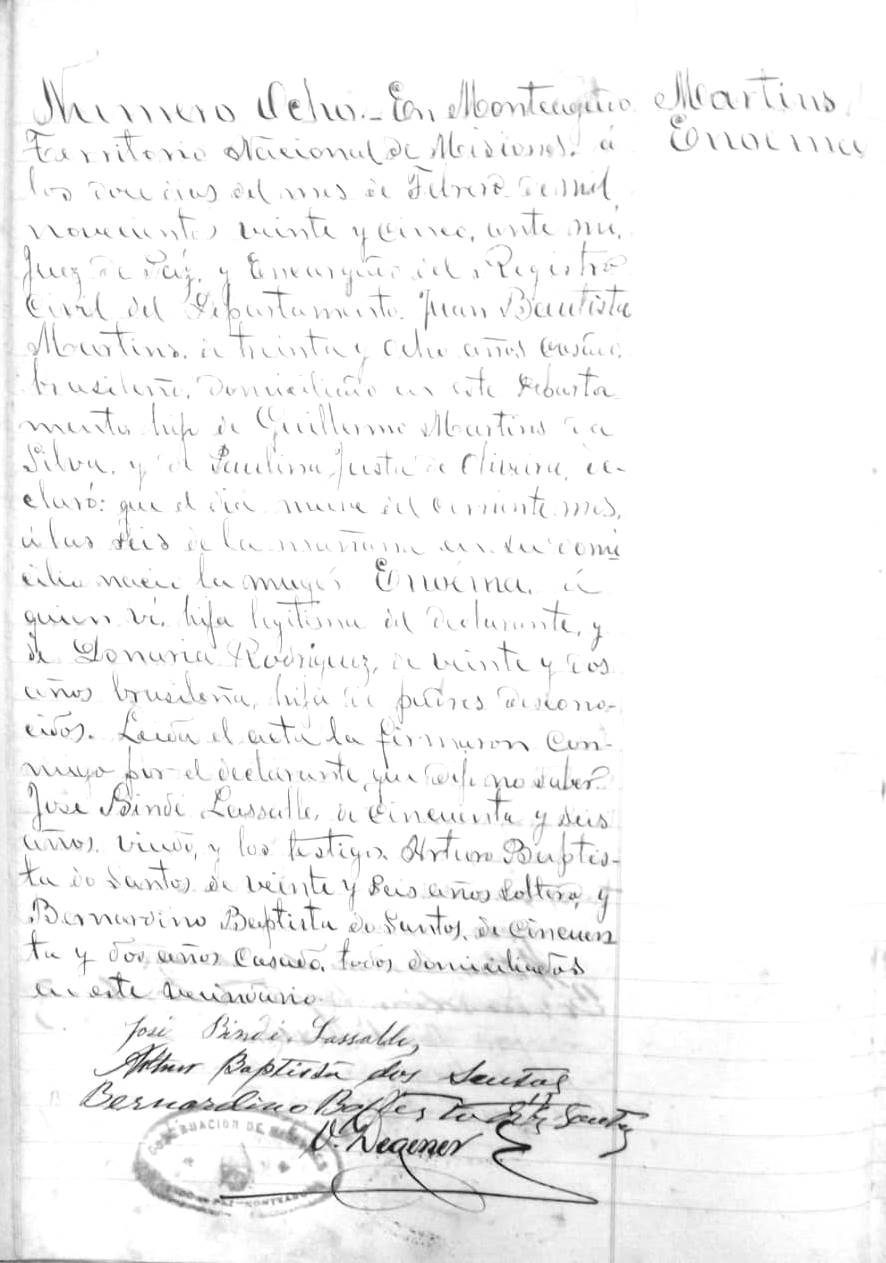 Numero Ocho.- En Monteagudo
Martins
Enoema
Territorio Nacional de Misiones. á
los doce dias del mes de Febrero de mil
novecientos veinte y cinco, ante mi,
Juez de Paz, y Encargado del Registro
Civil del Departamento. Juan Bautista
Martins. de treinta y ocho años casado.
brasileño, domiciliado en este Departa
mento hijo de Guillermo Martins da
Silva, y de Paulina Justa de Oliveira, de-
claró: que el dia nueve del corriente mes,
á las seis de la mañana en su domi
cilio nacio la muger Enoema. á
quien vi. hija legitima del declarante, y
de Rodriguez, de veinte y dos
años brasileña, hija de padres descono-
cidos. Leida el acta la firmaron con-
migo por el declarante que dijo no saber
José Bindé Lassalle, de cincuenta y seis
años. viudo, y los testigos Arturo Baptis-
ta do Santos de veinte y seis años soltero, y
Bernardino Baptista do Santos. de cincuen
ta y dos años casado, todos domiciliados
en este vecindario.
José Bindé Lassalle
Arthur Baptista dos Santos
Bernardino Santos
Degener
GOBERNACION DE MISIONES
JUZGADO DE PAZ